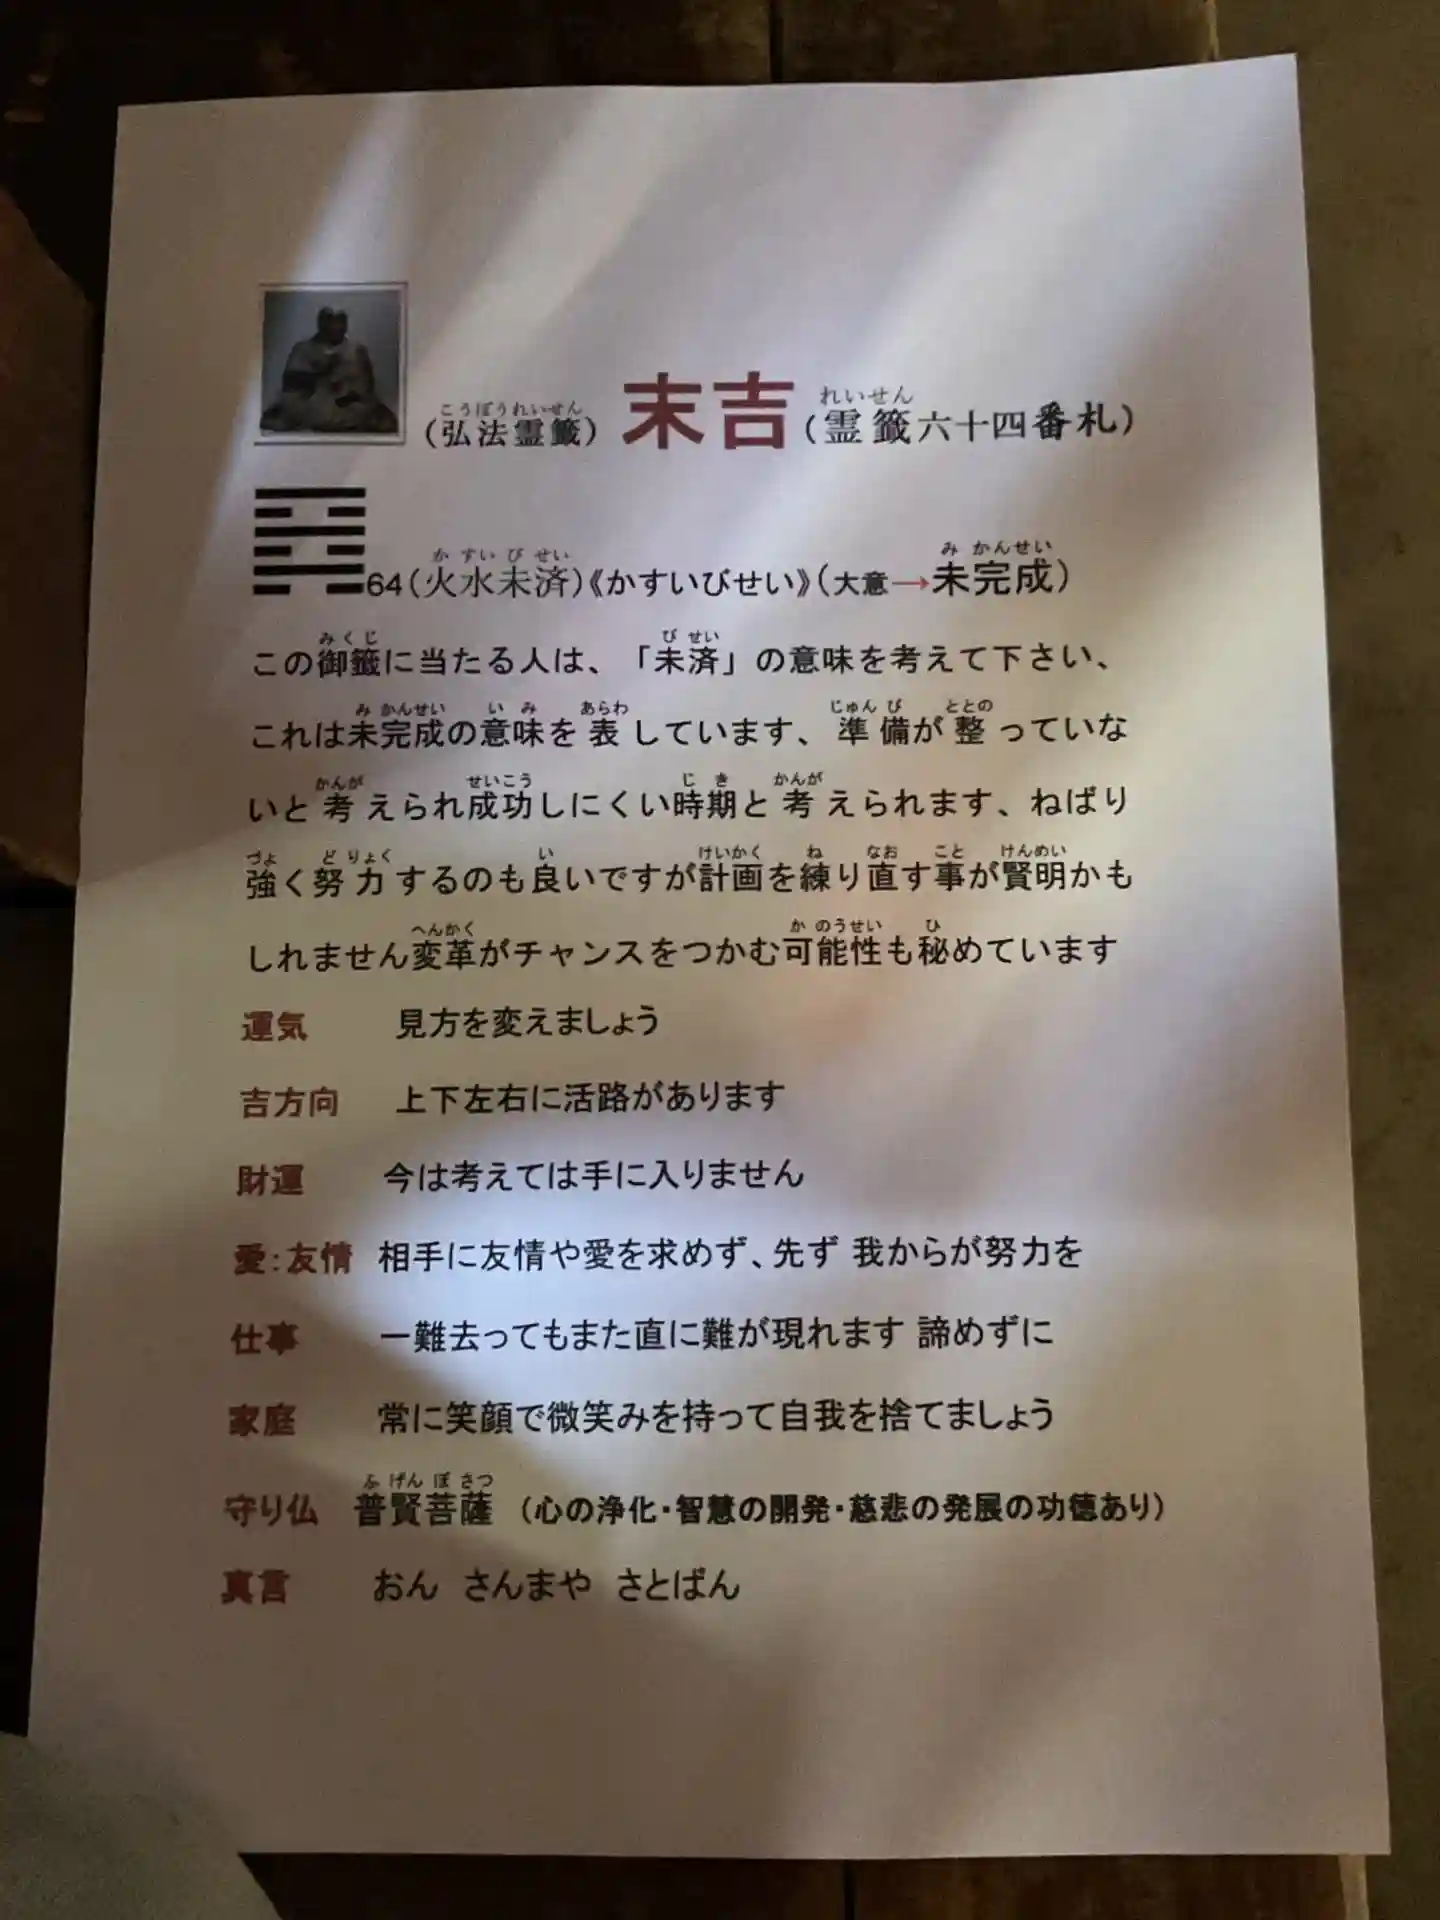 (弘法霊籤) 末吉 (霊籤六十四番札)
64(火水未済)《かすいびせい》(大意→未完成)
この御籤に当たる人は、「未済」の意味を考えて下さい、
これは未完成の意味を表しています、準備が整っていな
いと考えられ成功しにくい時期と考えられます、ねばり
強く努力するのも良いですが計画を練り直す事が賢明かも
しれません変革がチャンスをつかむ可能性も秘めています
運気 見方を変えましょう
吉方向 上下左右に活路があります
財運 今は考えては手に入りません
愛:友情 相手に友情や愛を求めず、先ず 我からが努力を
仕事 一難去ってもまた直に難が現れます 諦めずに
家庭 常に笑顔で微笑みを持って自我を捨てましょう
守り仏 普賢菩薩 (心の浄化・智慧の開発・慈悲の発展の功徳あり)
真言 おん さんまや さとばん